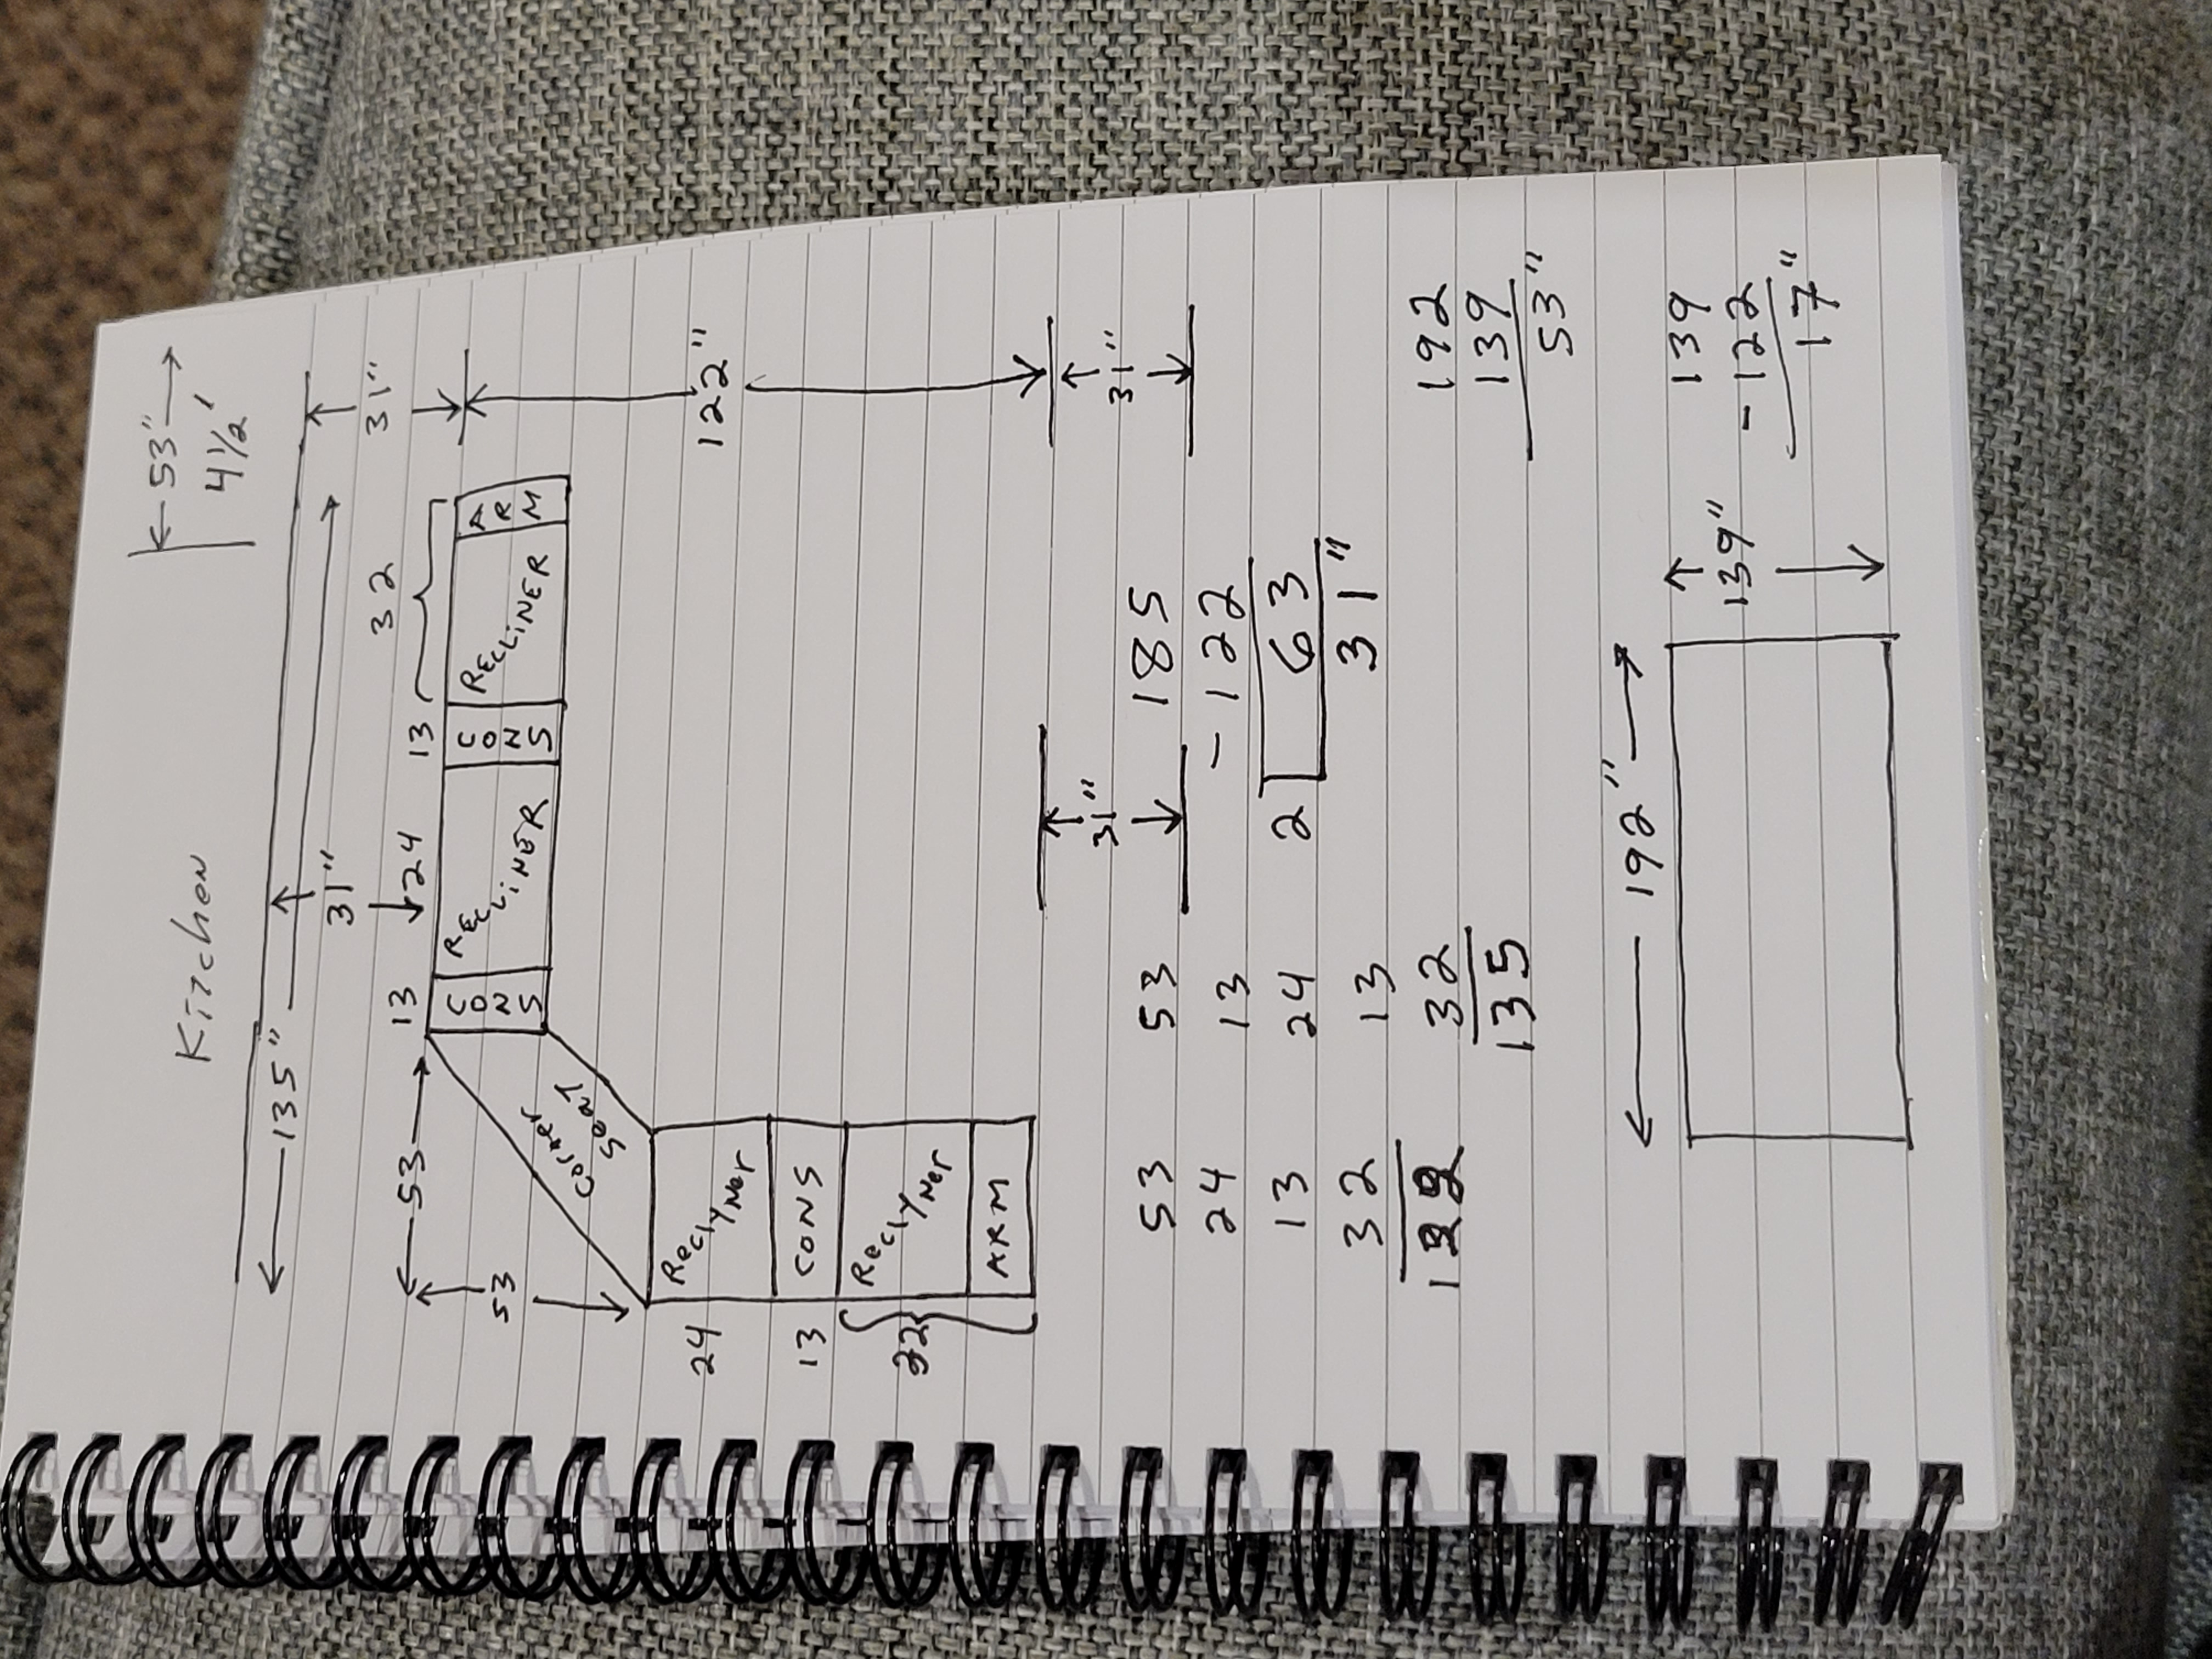 ←53"→
4½'
Kitchen
←135"→
31"
31"
←53→
13
24
13
32
53
CONS
RECLINER
CONS
RECLINER
ARM
Corner
Seat
122"
24
ReclyNer
13
CONS
32
ReclyNer
ARM
31"
31"
53
24
13
32
122
53
13
24
13
32
135
185
-122
2 63
31"
192
139
53"
←192"→
139"
139
-122
17"